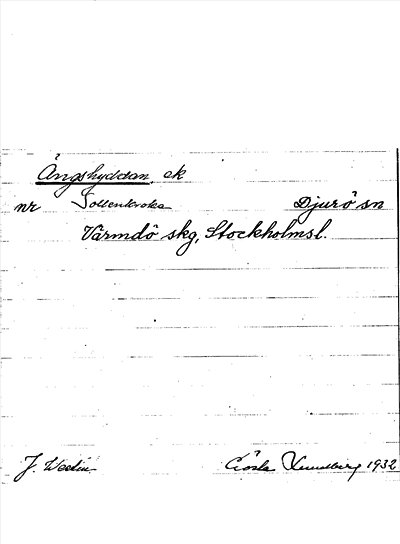 Ängshyddan, ek
nr Sollenkroka Djurö sn
Värmdö skg, Stockholmsl.
J. Wedin Gösta 1932